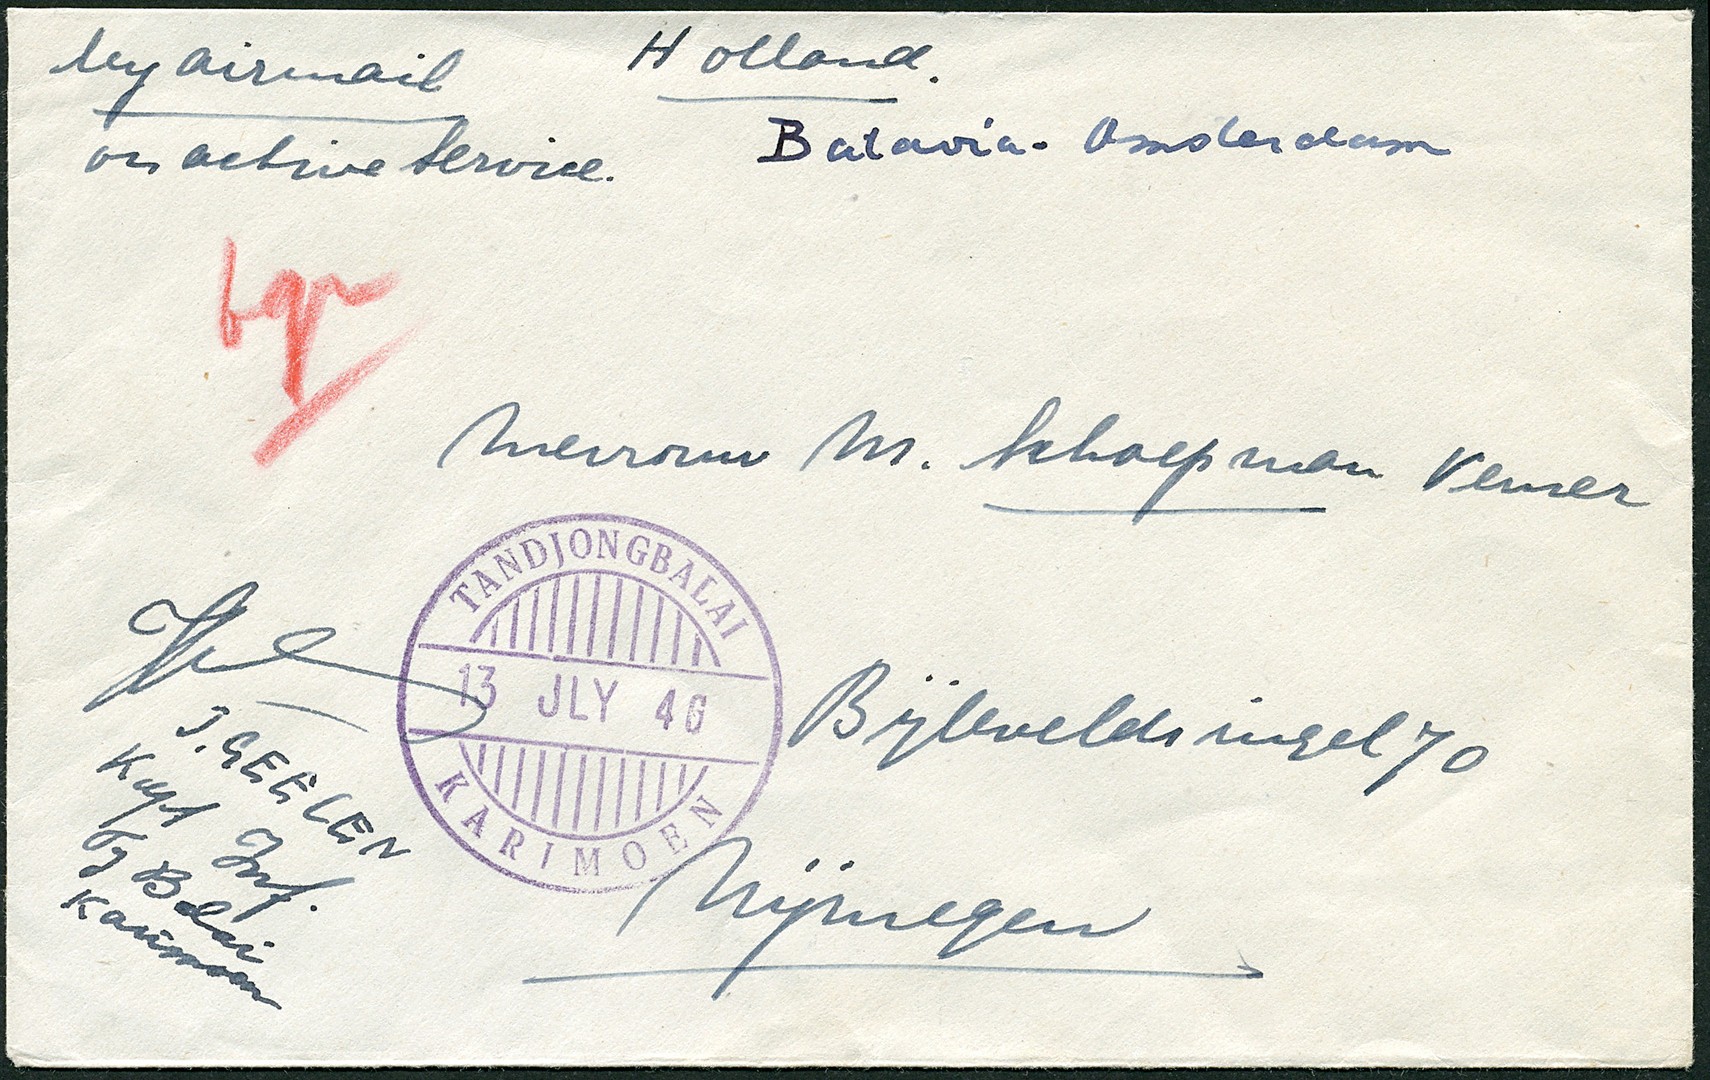 by airmail
Holland.
on active Service.
Batavia - Amsterdam
Mevrouw M. Schoepman Vemer
TANDJONGBALAI
13 JLY 46
KARIMOEN
Bijleveldsingel 70
Nijmegen
J. GEELEN
Kapt Inf.
Tg Balai
Karimoen